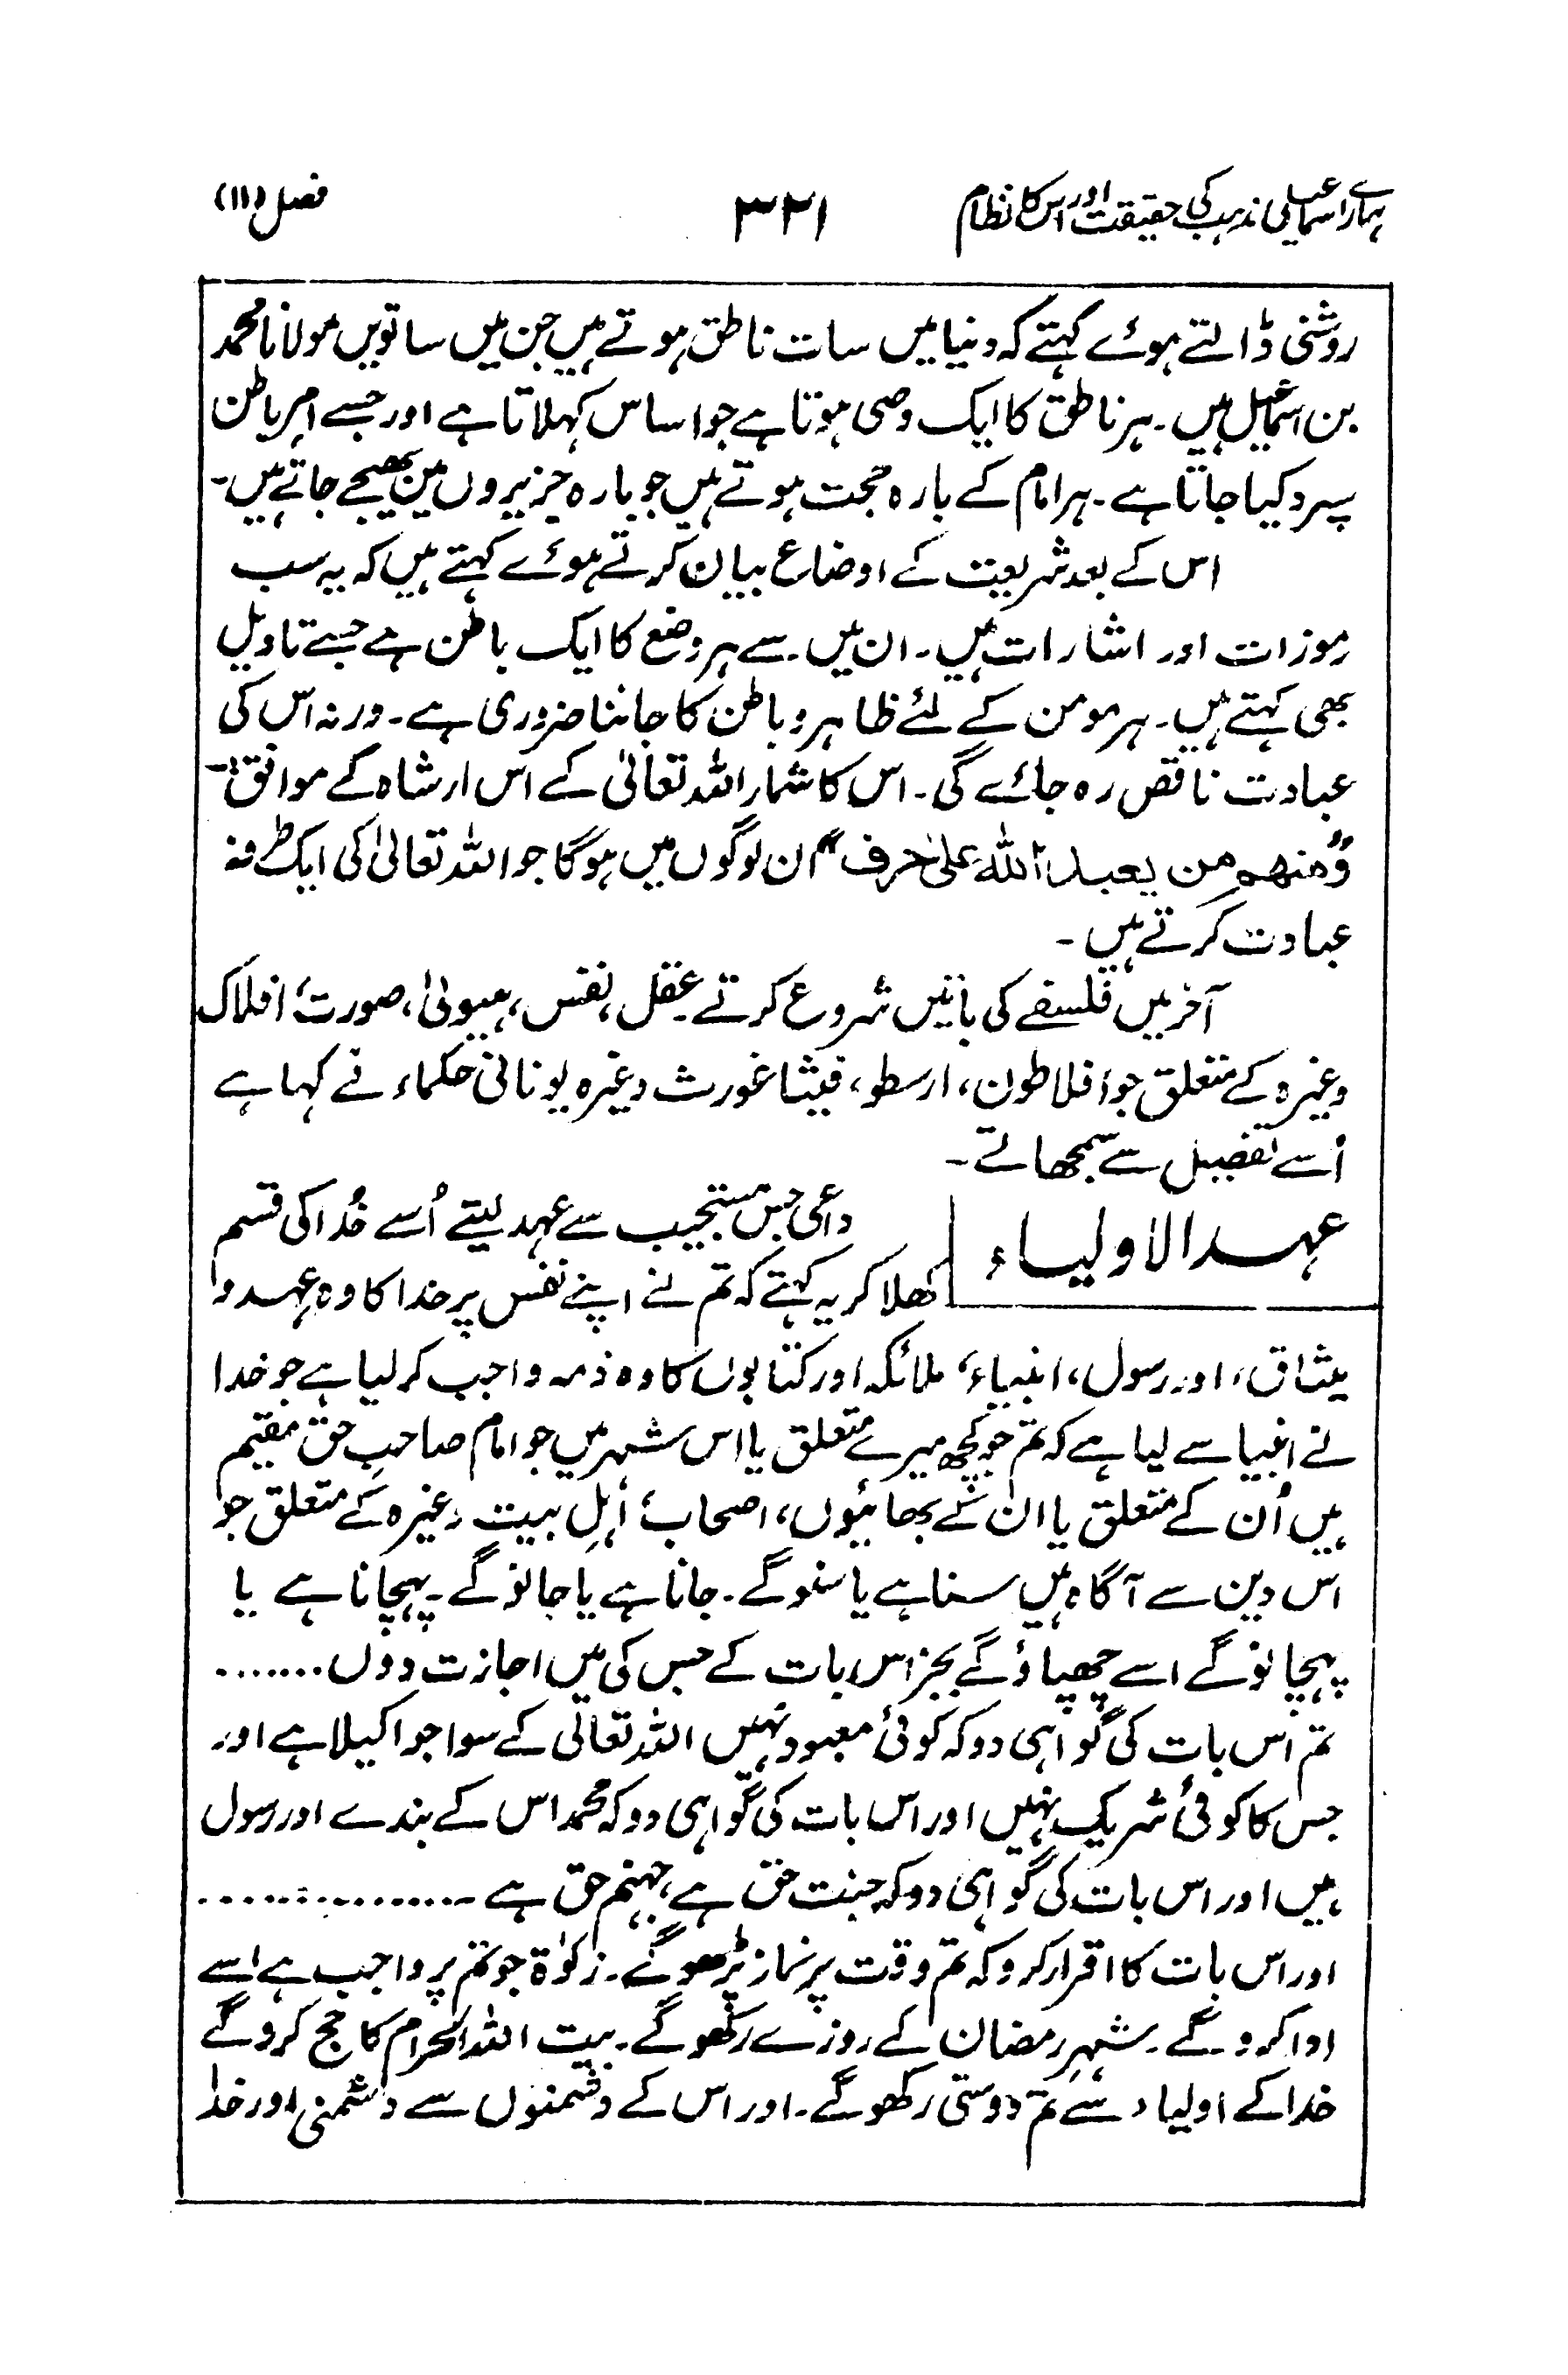 ہمارے اسماعیلی مذہب کی حقیقت اور اس کا نظام ۳۲۱ فصل (۱۱)
روشنی ڈالتے ہوئے کہتے کہ دنیا میں سات ناطق ہوتے ہیں جن میں ساتویں مولانا محمد
بن اسمٰعیل ہیں۔ ہر ناطق کا ایک وصی ہوتا ہے جو اساس کہلاتا ہے اور جسے امرِ باطن
سپرد کیا جاتا ہے۔ ہر امام کے بارہ حجت ہوتے ہیں جو بارہ جزیروں میں بھیجے جاتے ہیں۔
اس کے بعد شریعت کے اوضاع بیان کرتے ہوئے کہتے ہیں کہ یہ سب
رموزات اور اشارات ہیں۔ ان میں سے ہر وضع کا ایک باطن ہے جسے تاویل
بھی کہتے ہیں۔ ہر مومن کے لئے ظاہر و باطن کا جاننا ضروری ہے۔ ورنہ اس کی
عبادت ناقص رہ جائے گی۔ اس کا شمار اللہ تعالیٰ کے اس ارشاہ کے موافق:۔
”ومنھم من یعبد اللہ علیٰ حرف“ ان لوگوں میں ہوگا جو اللہ تعالیٰ کی ایک طرفہ
عبادت کرتے ہیں۔
آخر میں فلسفے کی باتیں شروع کرتے۔ عقل، نفس، ہیولیٰ، صورت، افلاک
وغیرہ کے متعلق جو افلاطون، ارسطو، فیثاغورث وغیرہ یونانی حکماء نے کہا ہے
اُسے تفصیل سے سمجھاتے۔
عہد الاولیاء
داعی جس مستجیب سے عہد لیتے اُسے خُدا کی قسم
کھلا کر یہ کہتے کہ تم نے اپنے نفس پر خدا کا وہ عہد و
میثاق، اور رسول، انبیاء، ملائکہ اور کتابوں کا وہ ذمہ واجب کر لیا ہے جو خدا
نے انبیا سے لیا ہے کہ تم جو کچھ میرے متعلق یا اس شہر میں جو امام صاحبِ حق مقیم
ہیں اُن کے متعلق یا ان کے بھائیوں، اصحاب، اہلِ بیت وغیرہ کے متعلق جو
اس دین سے آگاہ ہیں سنا ہے یا سنو گے۔ جانا ہے یا جانو گے۔ پہچانا ہے یا
پہچانو گے اسے چھپاؤ گے بجز اس بات کے جس کی میں اجازت دوں.......
تم اس بات کی گواہی دو کہ کوئی معبود نہیں اللہ تعالیٰ کے سوا جو اکیلا ہے اور
جس کا کوئی شریک نہیں اور اس بات کی گواہی دو کہ محمد اس کے بندے اور رسول
ہیں اور اس بات کی گواہی دو کہ جنت حق ہے، جہنم حق ہے ................
اور اس بات کا اقرار کرو کہ تم وقت پر نماز پڑھو گے۔ زکوٰۃ جو تم پر واجب ہے اسے
ادا کرو گے۔ شہرِ رمضان کے روزے رکھو گے۔ بیت اللہ الحرام کا حج کرو گے
خدا کے اولیاء سے تم دوستی رکھو گے۔ اور اس کے دشمنوں سے دشمنی اور خدا